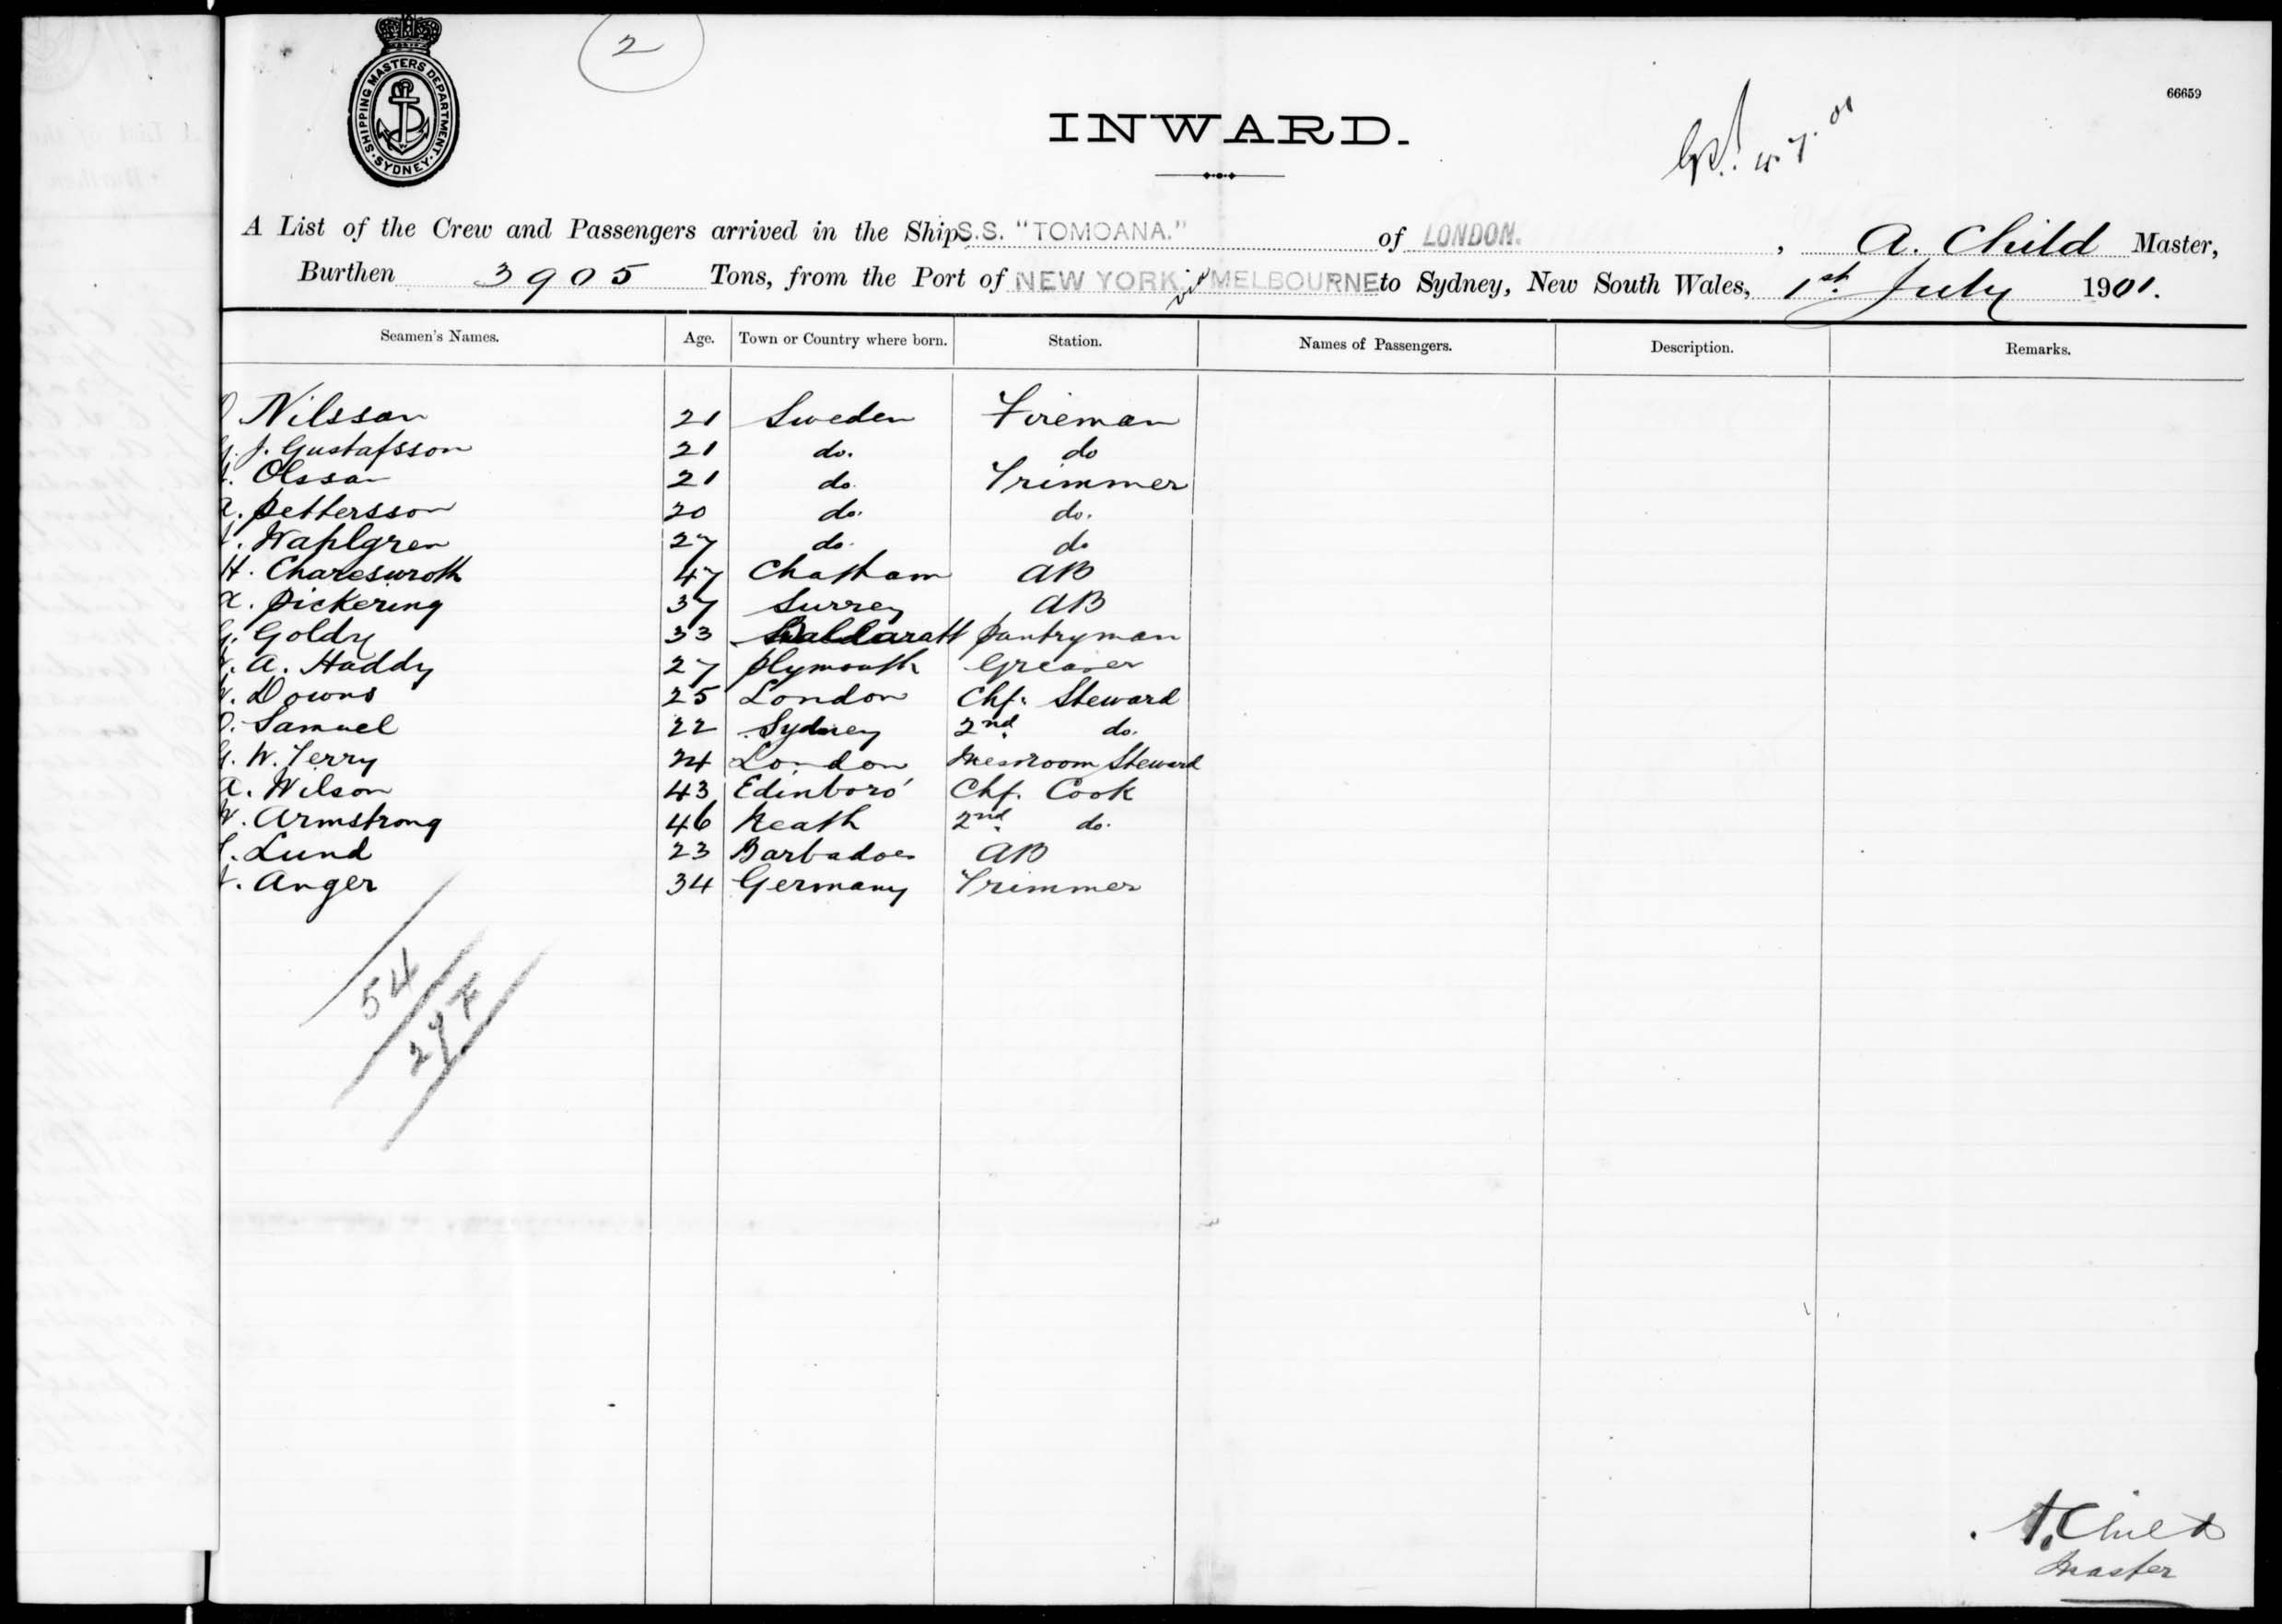 2
SHIPPING MASTERS DEPARTMENT. SYDNEY.
66659
INWARD.
A List of the Crew and Passengers arrived in the Ship S.S. "TOMOANA." of LONDON. , A. Child Master,
Burthen 3905 Tons, from the Port of NEW YORK via MELBOURNE to Sydney, New South Wales, 1st July 1901.
Seamen's Names. Age. Town or Country where born. Station. Names of Passengers. Description. Remarks.
Nilsson 21 Sweden Fireman
J. Gustafsson 21 do. do
Olsson 21 do. Trimmer
Pettersson 20 do. do.
Wahlgren 27 do. do
H. Charesworth 47 Chatham AB
Pickering 37 Surrey AB
G. Goldry 33 Ballaratt Pantryman
A. Haddy 27 Plymouth Greaser
Downs 25 London Chf. Steward
Samuel 22 Sydney 2nd do.
G. W. Terry 24 London Messroom Steward
A. Wilson 43 Edinboro' Chf. Cook
W. Armstrong 46 Neath 2nd do.
Lund 23 Barbadoes AB
Anger 34 Germany Trimmer
54
27
A. Child
Master